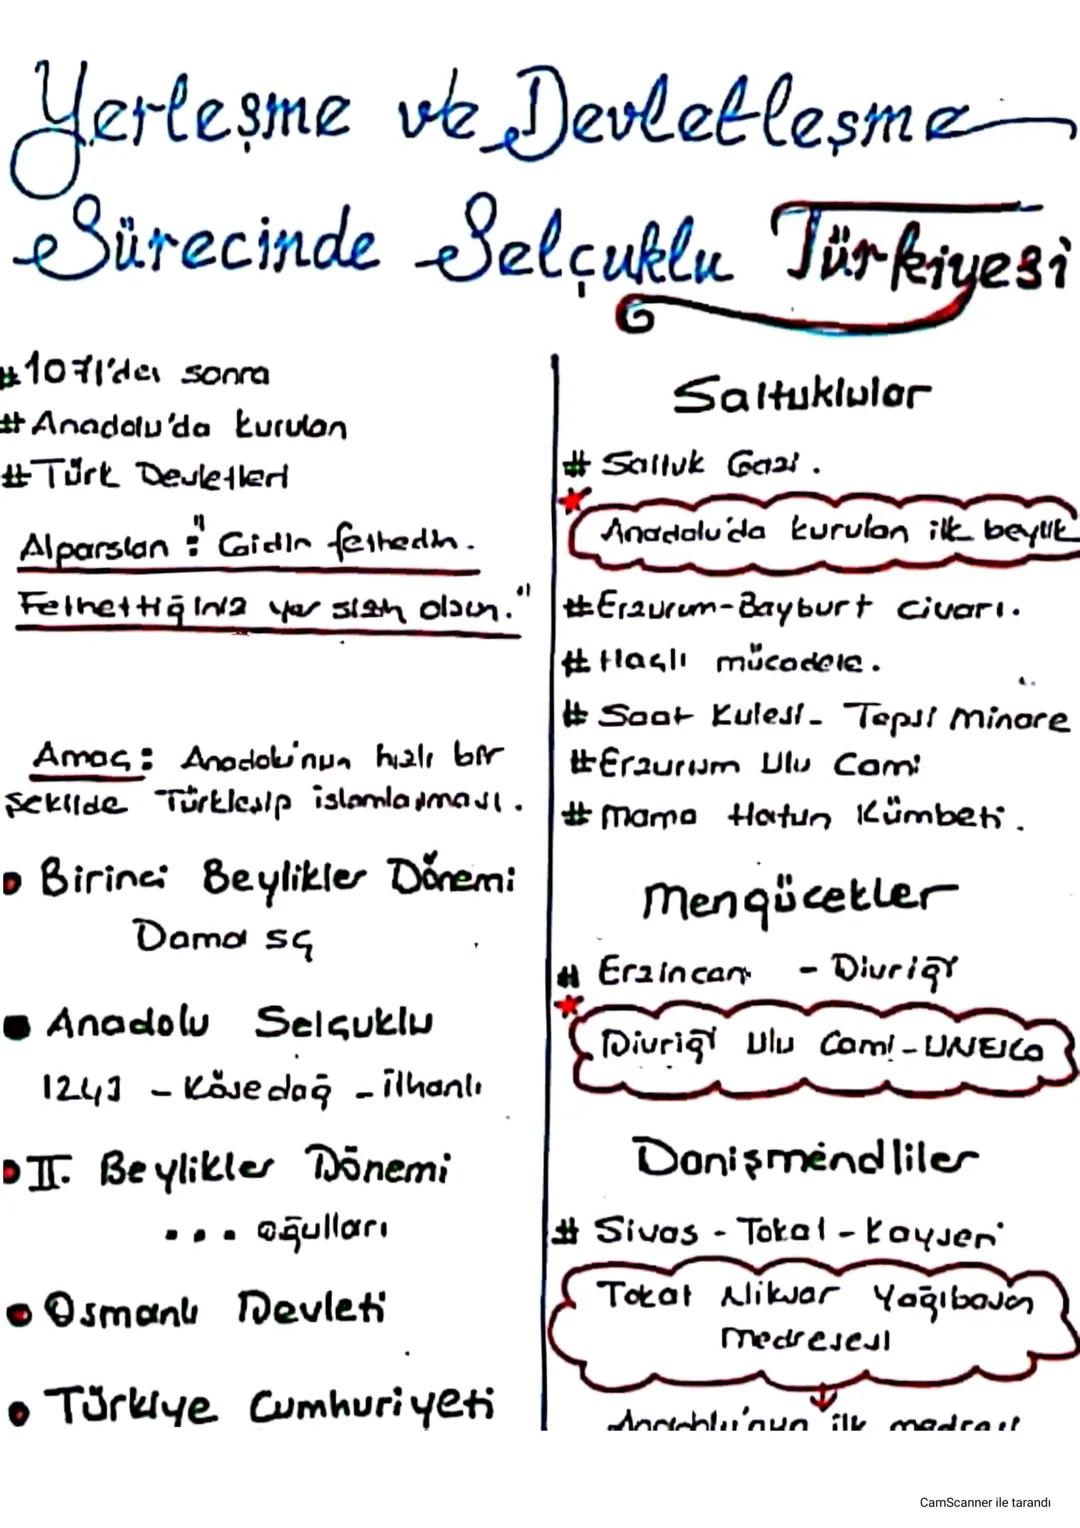 Yerleşme ve Devletleşme
Sürecinde Selçuklu Türkiyesi
# 1071'den sonra
# Anadolu'da kurulan
# Türk Devletleri
Alparslan : "Gidin fethedin.
Fethettiğiniz yer sizin olsun."
Amaç : Anadolu'nun hızlı bir
şekilde Türkleşip islamlaşması.
• Birinci Beylikler Dönemi
• Anadolu Selçuklu
1243 - Kösedağ - ilhanlı
• II. Beylikler Dönemi
... oğulları
• Osmanlı Devleti
• Türkiye Cumhuriyeti
Saltuklular
# Saltuk Gazi.
Anadolu'da kurulan ilk beylik
# Erzurum-Bayburt civarı.
# Haçlı mücadele.
# Saat Kulesi - Tepsi minare
# Erzurum Ulu Cami
# mama Hatun Kümbeti.
Mengücekler
# Erzincan - Divriği
Divriği Ulu Cami - UNESCO
Danişmendliler
# Sivas - Tokat - Kayseri
Tokat Niksar Yağıbasan
medresesi
Anadolu'nun ilk medresesi
CamScanner ile tarandı